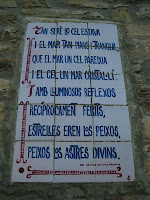 TAN SERÈ LO CEL ESTAVA
I EL MAR TAN MANS I TRANQUIL
QUE EL MAR UN CEL PAREIXIA
I EL CEL UN MAR CRISTAL·LÍ
AMB LLUMINOSOS REFLEXOS
RECÍPROCAMENT FERITS,
ESTRELLES EREN LOS PEIXOS,
PEIXOS LOS ASTRES DIVINS.